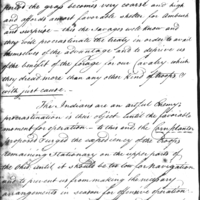 period the grass becomes very coarse and high
and affords a most favorable shelter for ambush
and surprise — this the savages well know and
they will procrastinate the treaty in order to avail
themselves of the advantage and to deprive us
of the benefit of the forage for our Cavalry which
they dread more than any other kind of troops &
with just cause.
The Indians are an artful Enemy;
procrastination is their object until the favorable
moment for operation — to this end the Corn planter
proposes & urged the expediency of the troops
remaining Stationary on the upper parts of
the Ohio until
and to prevent us from making the necessary
arrangements in season for offensive operation